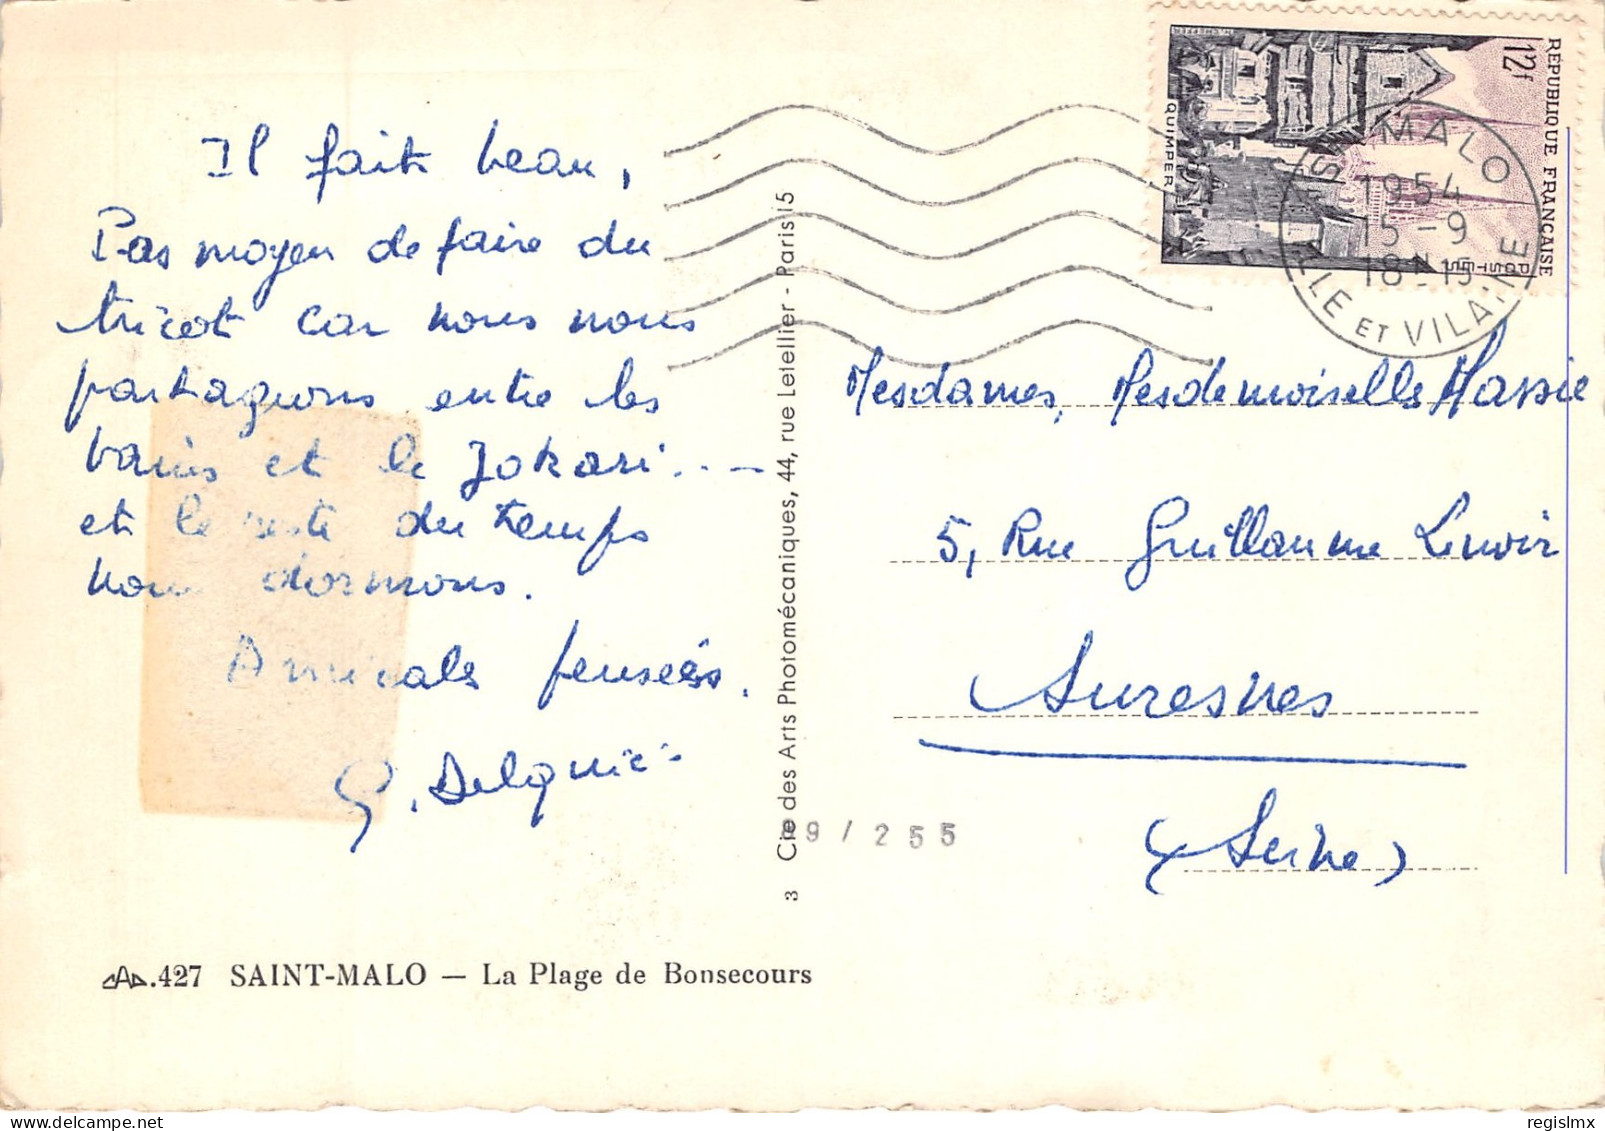 Il fait beau,
Pas moyen de faire du
tricot car nous nous
partageons entre les
bains et le Jokari...—
et le reste du temps
nous dormons.
Amicales pensées.
3 Cie des Arts Photomécaniques, 44, rue Letellier - Paris 15
99/255
CAP.427 SAINT-MALO — La Plage de Bonsecours
REPUBLIQUE FRANÇAISE
12f
POSTES
QUIMPER
ST MALO
1954
15-9
18H15
ILLE ET VILAINE
Mesdames, Mesdemoiselles Massie
5, Rue Guillaume Lenoir
Suresnes
(Seine)
regislmx
www.delcampe.net